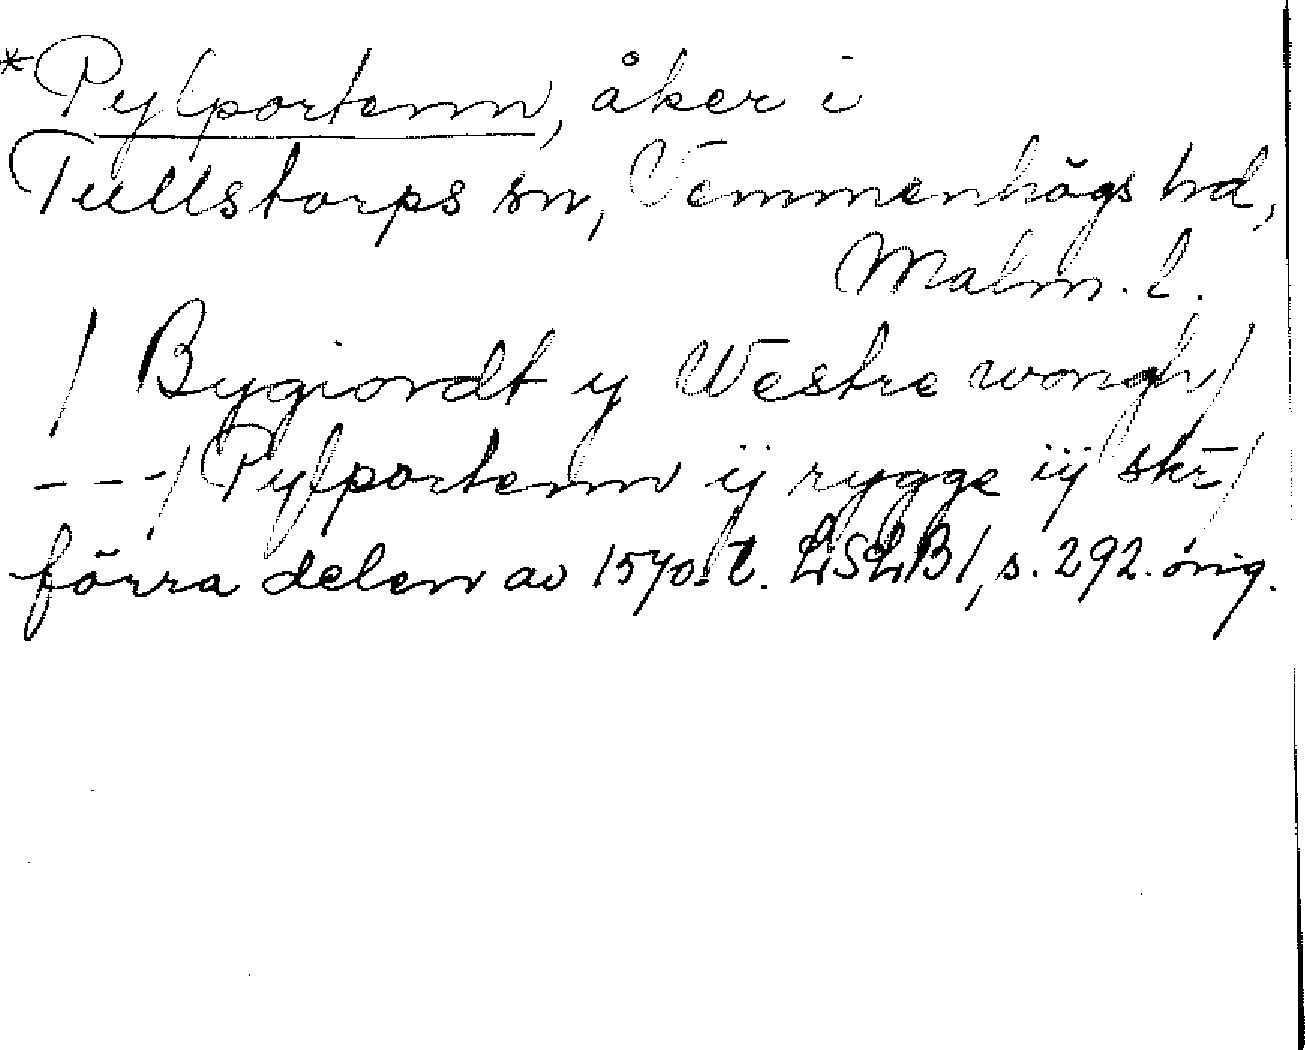 *Pylportenn, åker i
Tullstorps sn, Vemmenhögs hd,
Malm. l.
/ Bygiordt y Westre wongh/
---/ Pylportenn ij rygge iij skr̄/
förra delen av 1570-t. LSLB1, s. 292. orig.